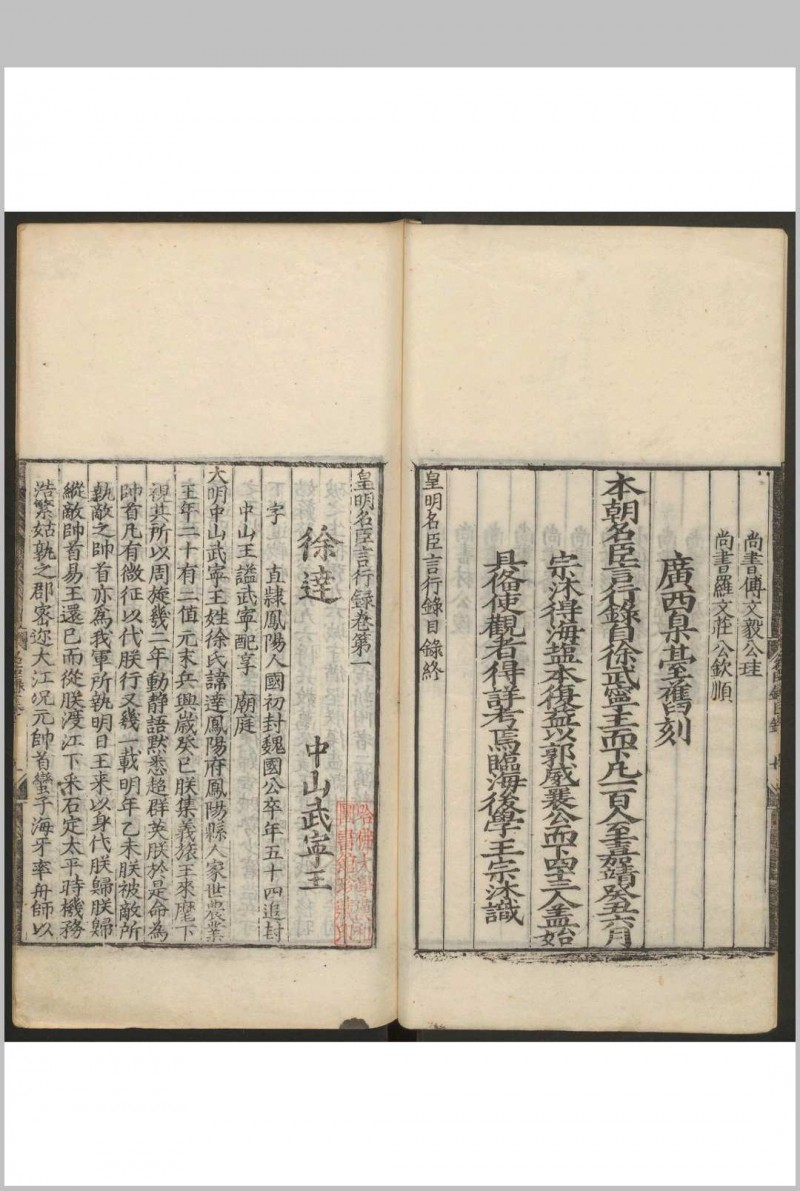 尚書傅文毅公珪
尚書羅文莊公欽順
廣西臬臺舊刻
本朝名臣言行錄自徐武寧王而下凡一百八至嘉靖癸丑六月
宗沐得海盐本復益以郭威襄公而下四十三人盖始
具備使觀者得詳考焉臨海後學王宗沐識
皇明名臣言行錄目錄終
皇明名臣言行錄卷第一
徐達 中山武寧王
字 直隷鳳陽人國初封魏國公卒年五十四追封
中山王謚武寧配享 廟庭
大明中山武寧王姓徐氏諱達鳳陽府鳳陽縣人家世農業
王年二十有二值元末兵興歲癸巳朕集義旅王來麾下
視其所以周旋幾二年動静語默悉超群英朕於是命為
帥首凡有微征以代朕行又幾一載明年乙未朕被敵所
執敵之帥首亦為我軍所執明日王來以身代朕歸朕歸
縱敵帥首易王還已而從朕渡江下采石定太平時機務
浩繁姑孰之郡密迩大江况元帥首蠻子海牙率舟師以